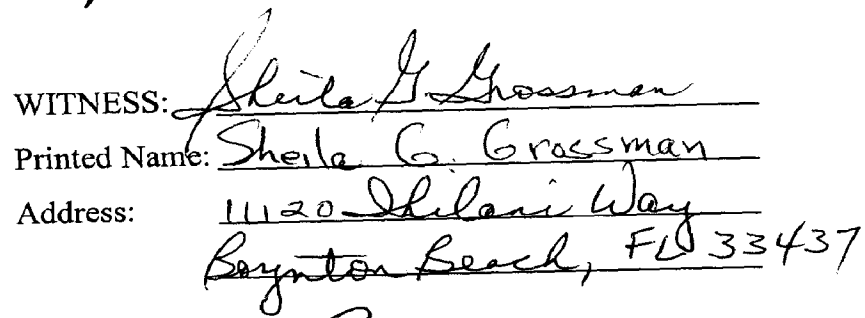 WITNESS: Sheila G. Grossman
Printed Name: Sheila G. Grossman
Address: 11120 Ihilani Way
Boynton Beach, FL 33437